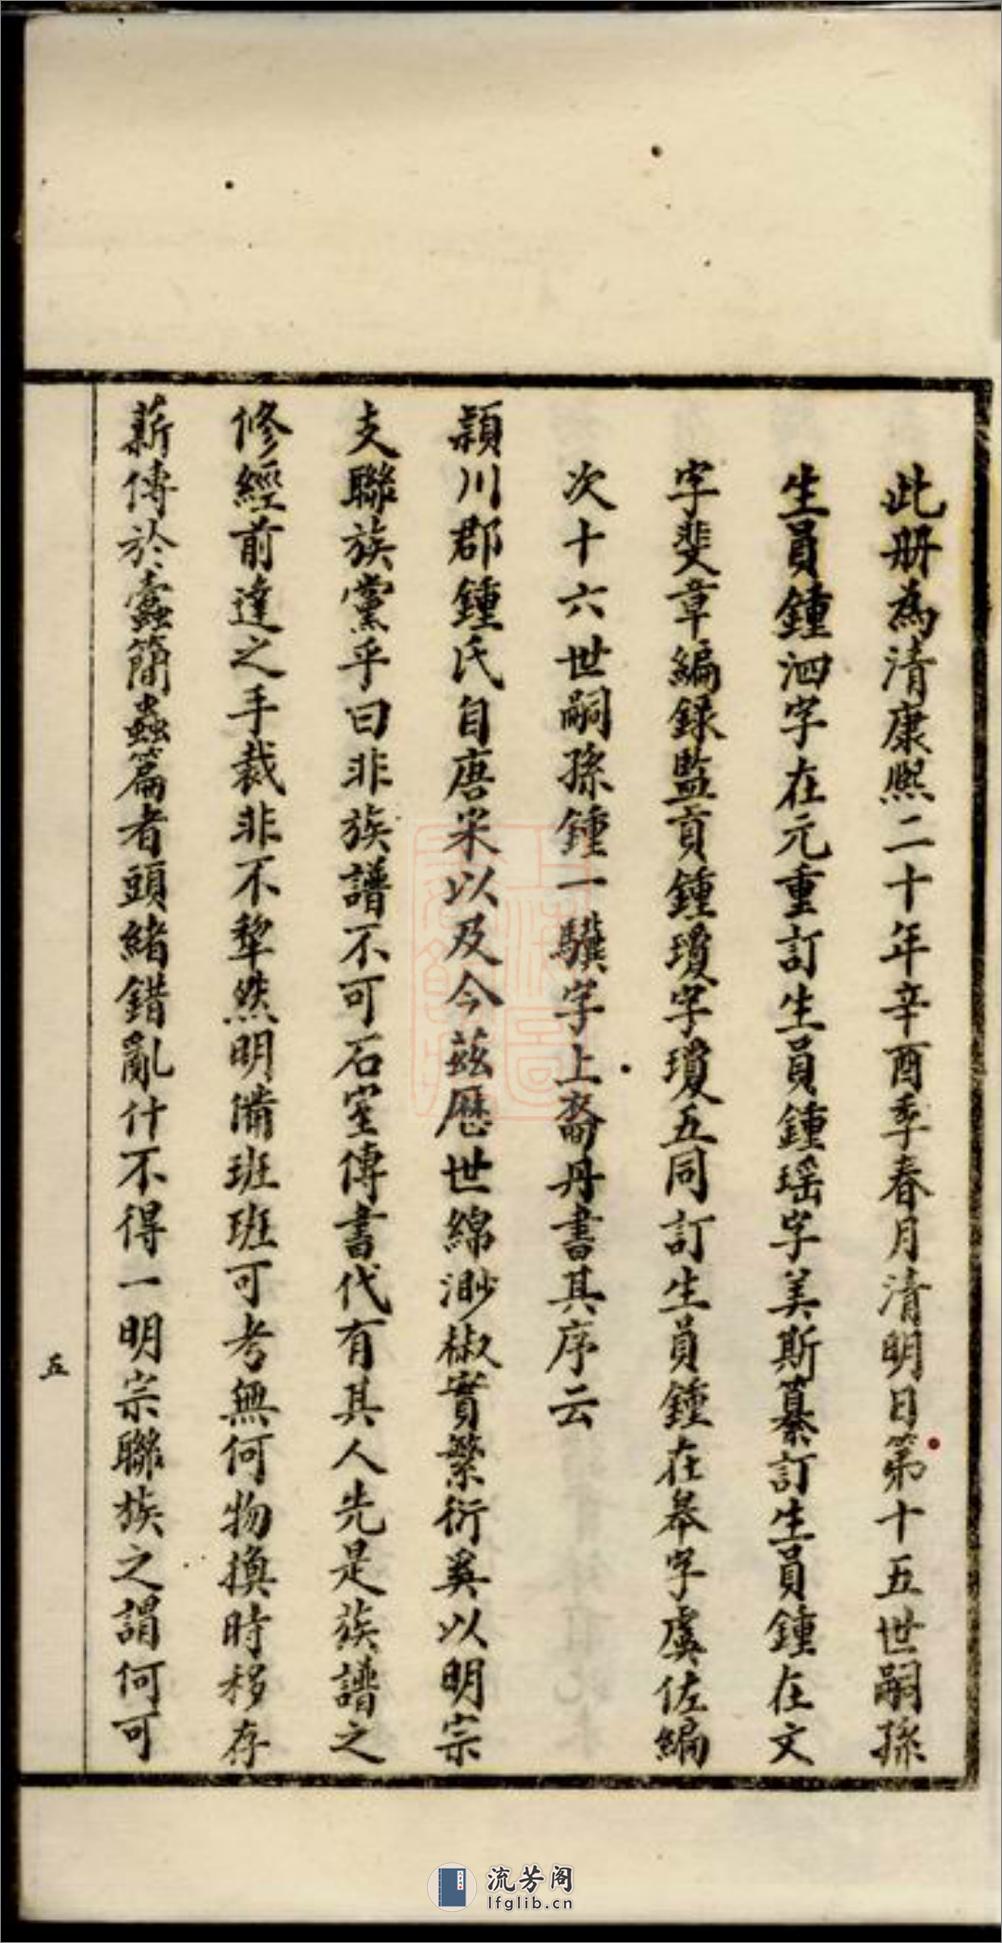 此册為清康熙二十年辛酉季春月清明日第十五世嗣孫
生員鍾泗字在元重訂生員鍾瑶字美斯纂訂生員鍾在文
字斐章編録監貢鍾瓊字瓊五同訂生員鍾在皋字虞佐編
次十六世嗣孫鍾一驥字上裔丹書其序云
頴川郡鍾氏自唐宋以及今茲歷世綿渺椒實繁衍奚以明宗
支聯族黨乎曰非族譜不可石室傳書代有其人先是族譜之
修經前達之手裁非不犂然明備班班可考無何物換時移存
薪傳於蠹簡蟲篇者頭緒錯亂什不得一明宗聯族之謂何可
五
上海圖書館藏
流芳阁
lfglib.cn